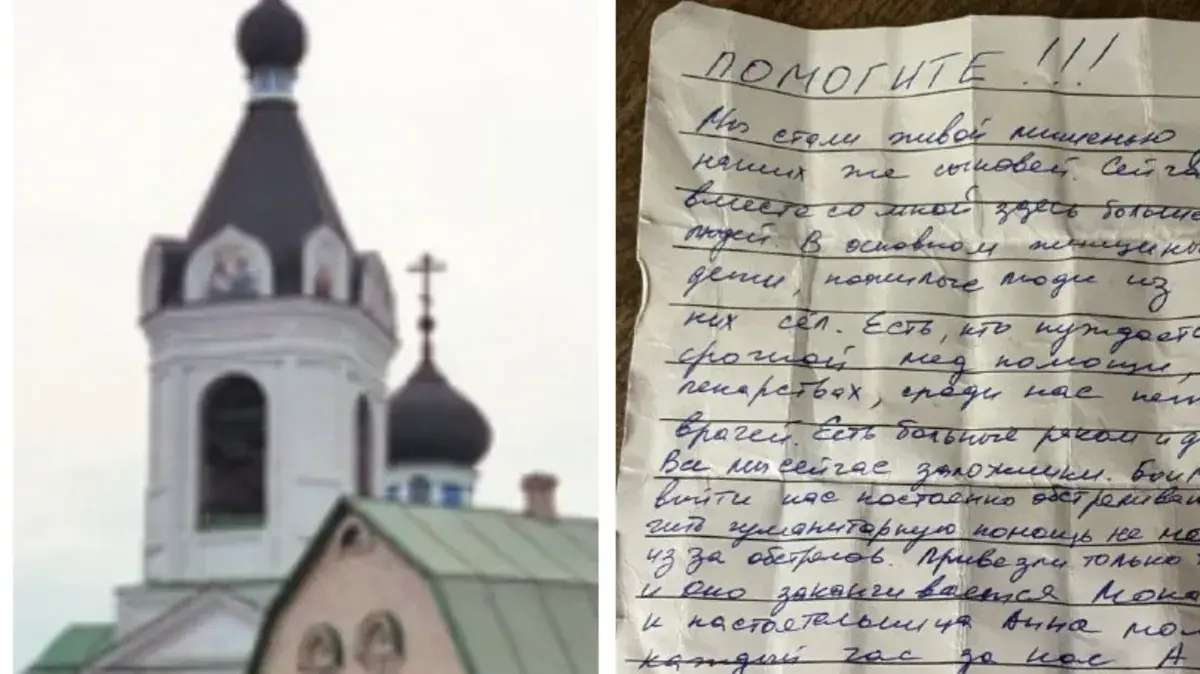 ПОМОГИТЕ !!!
Мы стали живой мишенью
наших же сыновей. Сейча
вместе со мной здесь больше
людей. В основном женщины
дети, пожилые люди из
них сёл. Есть, кто нуждаетс
срочной мед помощи,
лекарствах, среди нас нет
врачей. Есть больные раком и д
Все мы сейчас заложники. Боим
выйти нас постоенно обстрелива
чить гуманитарную помощь не мо
из за обстрелов. Привезли только
и оно заканчивается Мона
и настоятельница Анна мол
каждый час за нас А